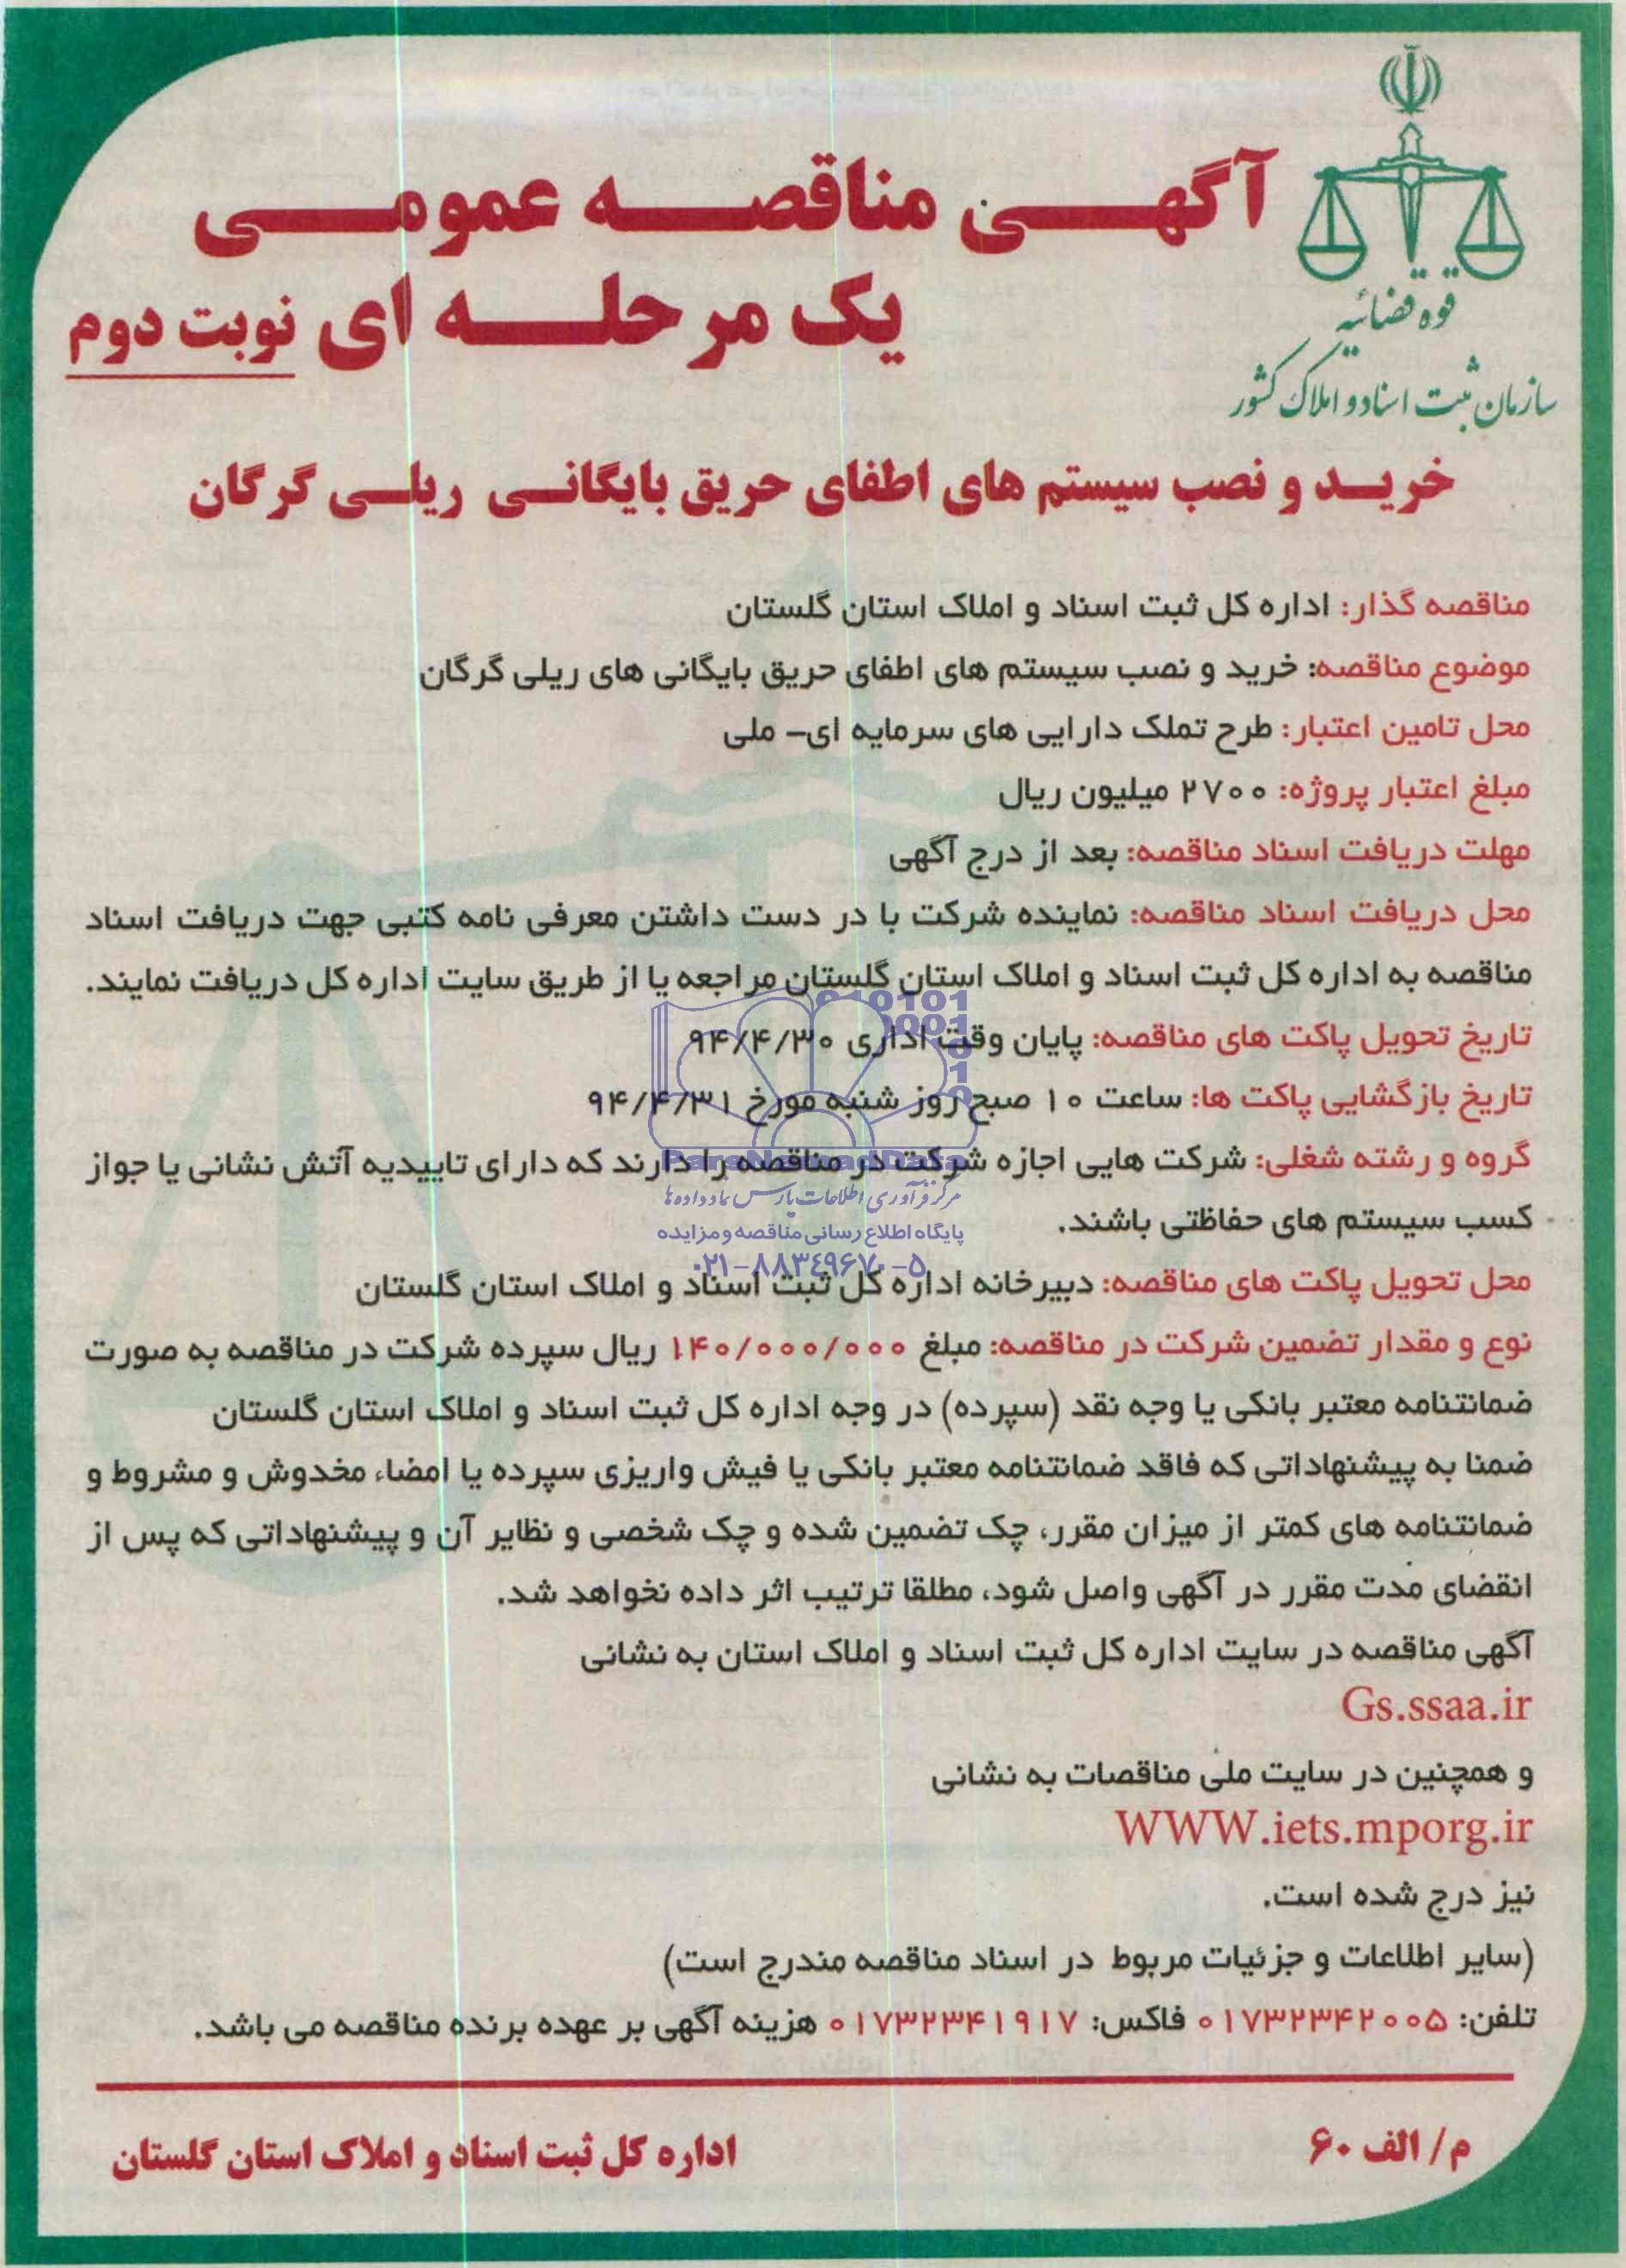 آگهی مناقصه عمومی
یک مرحله ای نوبت دوم
قوه قضائیه
سازمان ثبت اسناد و املاک کشور
خرید و نصب سیستم های اطفای حریق بایگانی ریلی گرگان
مناقصه گذار: اداره کل ثبت اسناد و املاک استان گلستان
موضوع مناقصه: خرید و نصب سیستم های اطفای حریق بایگانی های ریلی گرگان
محل تامین اعتبار: طرح تملک دارایی های سرمایه ای- ملی
مبلغ اعتبار پروژه: ۲۷۰۰ میلیون ریال
مهلت دریافت اسناد مناقصه: بعد از درج آگهی
محل دریافت اسناد مناقصه: نماینده شرکت با در دست داشتن معرفی نامه کتبی جهت دریافت اسناد
مناقصه به اداره کل ثبت اسناد و املاک استان گلستان مراجعه یا از طریق سایت اداره کل دریافت نمایند.
تاریخ تحویل پاکت های مناقصه: پایان وقت اداری ۹۴/۴/۳۰
تاریخ بازگشایی پاکت ها: ساعت ۱۰ صبح روز شنبه مورخ ۹۴/۴/۳۱
گروه و رشته شغلی: شرکت هایی اجازه شرکت در مناقصه را دارند که دارای تاییدیه آتش نشانی یا جواز
کسب سیستم های حفاظتی باشند.
ParsNamadData
مرکز فرآوری اطلاعات پارس نماد داده ها
پایگاه اطلاع رسانی مناقصه و مزایده
۰۲۱-۸۸۳۴۹۶۷۰-۵
محل تحویل پاکت های مناقصه: دبیرخانه اداره کل ثبت اسناد و املاک استان گلستان
نوع و مقدار تضمین شرکت در مناقصه: مبلغ ۱۴۰/۰۰۰/۰۰۰ ریال سپرده شرکت در مناقصه به صورت
ضمانتنامه معتبر بانکی یا وجه نقد (سپرده) در وجه اداره کل ثبت اسناد و املاک استان گلستان
ضمنا به پیشنهاداتی که فاقد ضمانتنامه معتبر بانکی یا فیش واریزی سپرده یا امضاء مخدوش و مشروط و
ضمانتنامه های کمتر از میزان مقرر، چک تضمین شده و چک شخصی و نظایر آن و پیشنهاداتی که پس از
انقضای مدت مقرر در آگهی واصل شود، مطلقا ترتیب اثر داده نخواهد شد.
آگهی مناقصه در سایت اداره کل ثبت اسناد و املاک استان به نشانی
Gs.ssaa.ir
و همچنین در سایت ملی مناقصات به نشانی
WWW.iets.mporg.ir
نیز درج شده است.
(سایر اطلاعات و جزئیات مربوط در اسناد مناقصه مندرج است)
تلفن: ۰۱۷۳۲۳۴۲۰۰۵ فاکس: ۰۱۷۳۲۳۴۱۹۱۷ هزینه آگهی بر عهده برنده مناقصه می باشد.
م/ الف ۶۰
اداره کل ثبت اسناد و املاک استان گلستان